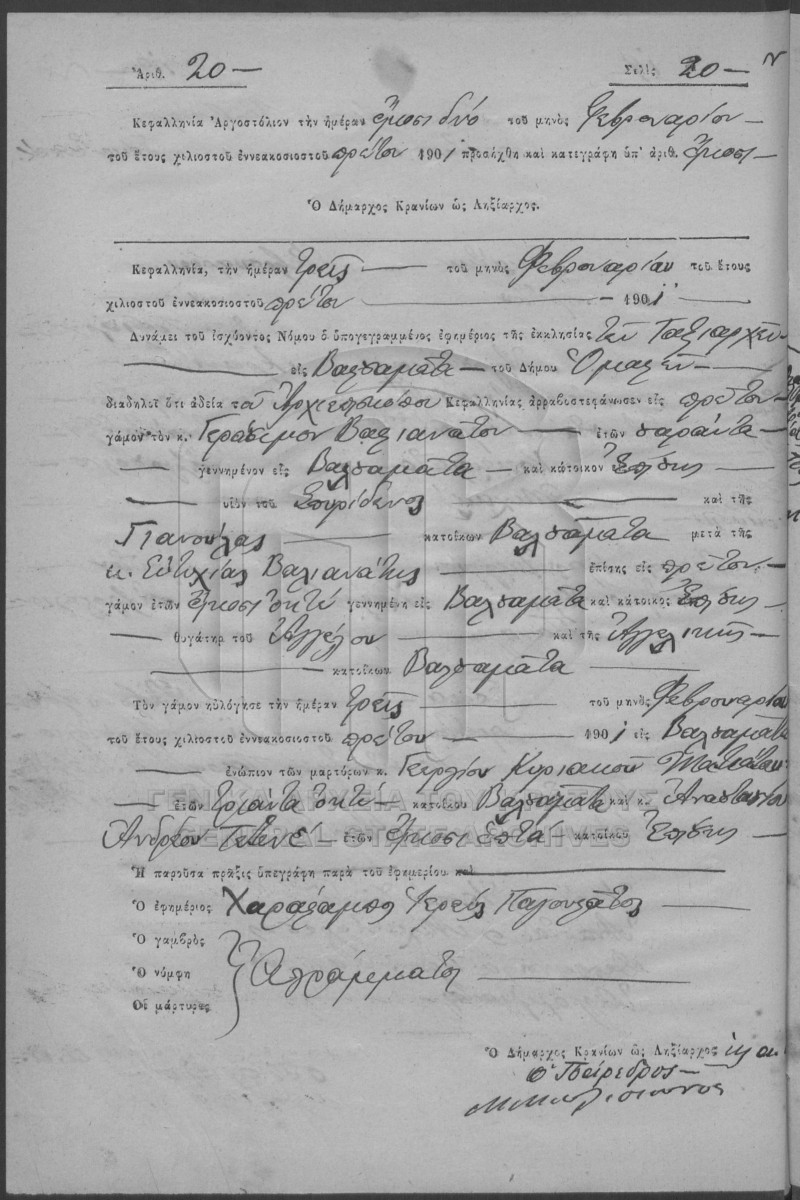 Ἀριθ. 20 — Σελὶς 20 —
Κεφαλληνία Ἀργοστόλιον τὴν ἡμέραν εἴκοσι δύο τοῦ μηνὸς Φεβρουαρίου —
τοῦ ἔτους χιλιοστοῦ ἐννεακοσιοστοῦ πρώτου 1901 προσήχθη καὶ κατεγράφη ὑπ' ἀριθ. εἴκοσι —
Ὁ Δήμαρχος Κρανίων ὡς Ληξίαρχος.
Κεφαλληνία, τὴν ἡμέραν τρεῖς — τοῦ μηνὸς Φεβρουαρίου τοῦ ἔτους
χιλιοστοῦ ἐννεακοσιοστοῦ πρώτου — 1901
Δυνάμει τοῦ ἰσχύοντος Νόμου ὁ ὑπογεγραμμένος ἐφημέριος τῆς ἐκκλησίας τῶν Ταξιαρχῶν
— εἰς Βαλσαμάτα — τοῦ Δήμου Ὁμαλῶν —
διαδηλοῖ ὅτι ἀδείᾳ τοῦ Ἀρχιεπισκόπου Κεφαλληνίας ἀρραβοστεφάνωσεν εἰς πρῶτον
γάμον τὸν κ. Γεράσιμον Βαλιανάτον — ἐτῶν σαράντα —
— γεννημένον εἰς Βαλσαμάτα — καὶ κάτοικον ἐπίσης —
— υἱὸν τοῦ Σπυρίδωνος — καὶ τῆς
Γιανούλας — κατοίκων Βαλσαμάτα μετὰ τῆς
κ. Εὐτυχίας Βαλιανάτης — ἐπίσης εἰς πρῶτον —
γάμον ἐτῶν εἴκοσι ὀκτώ γεννημένη εἰς Βαλσαμάτα καὶ κάτοικος ἐπίσης —
— θυγάτηρ τοῦ Ἀγγέλου — καὶ τῆς Ἀγγελικῆς —
— κατοίκων Βαλσαμάτα —
Τὸν γάμον ηὐλόγησε τὴν ἡμέραν τρεῖς — τοῦ μηνὸς Φεβρουαρίου
τοῦ ἔτους χιλιοστοῦ ἐννεακοσιοστοῦ πρώτου — 1901 εἰς Βαλσαμάτα
— ἐνώπιον τῶν μαρτύρων κ. Γεωργίου Κυριακοῦ
— ἐτῶν τριάντα ὀκτώ — κατοίκου Βαλσαμάτα καὶ κ. Ἀναστασίου
Ἀνδρέου — ἐτῶν εἴκοσι ἑπτά — κατοίκου ἐπίσης —
Ἡ παροῦσα πρᾶξις ὑπεγράφη παρὰ τοῦ ἐφημερίου καὶ
Ὁ ἐφημέριος Χαράλαμπος Ἱερεὺς —
Ὁ γαμβρὸς
Ὁ νύμφη Ἀγράμματοι —
Οἱ μάρτυρες
Ὁ Δήμαρχος Κρανίων ὡς Ληξίαρχος
Ὁ Πάρεδρος —
ΓΕΝΙΚΑ ΑΡΧΕΙΑ ΤΟΥ ΚΡΑΤΟΥΣ
GENERAL STATE ARCHIVES